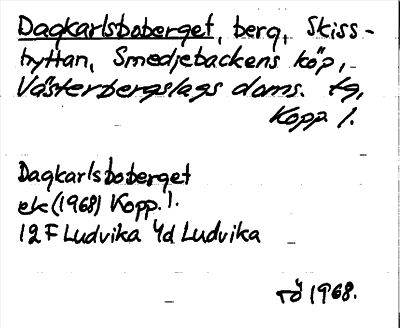 Dagkarlsboberget, berg, Skiss-
hyttan, Smedjebackens köp,
Västerbergslags doms. tg,
Kopp. l.
Dagkarlsboberget
ek (1968) Kopp. l.
12 F Ludvika 4d Ludvika
rö 1968.